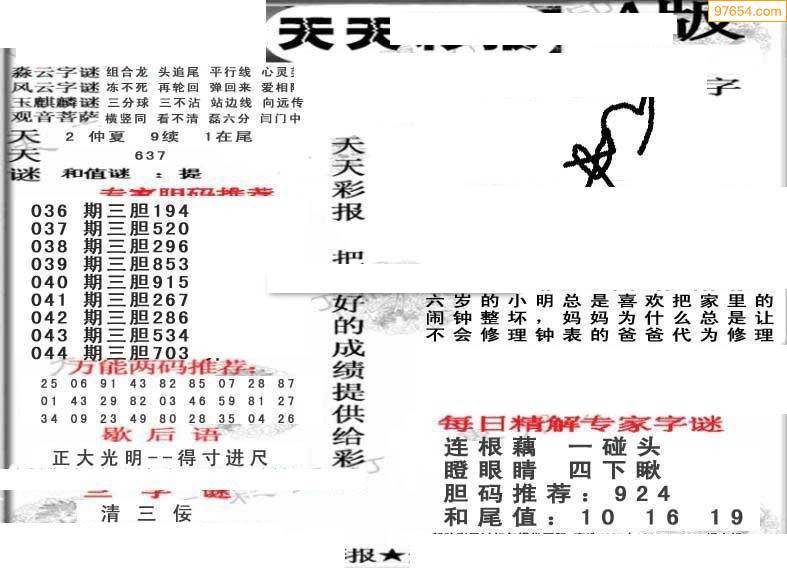 97654.com
天天
版
字
森云字谜 组合龙 头追尾 平行线 心灵
风云字谜 冻不死 再轮回 弹回来 爱相
玉麒麟谜 三分球 三不沾 站边线 向远传
观音菩萨 横竖同 看不清 磊六分 闫门中
天 2 仲夏 9续 1在尾
天 637
谜 和值谜 : 提
专家胆码推荐
036 期三胆194
037 期三胆520
038 期三胆296
039 期三胆853
040 期三胆915
041 期三胆267
042 期三胆286
043 期三胆534
044 期三胆703
万能两码推荐:
25 06 91 43 82 85 07 28 87
01 43 29 82 03 46 59 81 27
34 09 23 49 80 28 35 04 26
歇后语
正大光明--得寸进尺
三字谜
清三佞
天天彩报 把好的成绩提供给彩
报★
六岁的小明总是喜欢把家里的
闹钟整坏，妈妈为什么总是让
不会修理钟表的爸爸代为修理
每日精解专家字谜
连根藕 一碰头
瞪眼睛 四下瞅
胆码推荐: 924
和尾值: 10 16 19